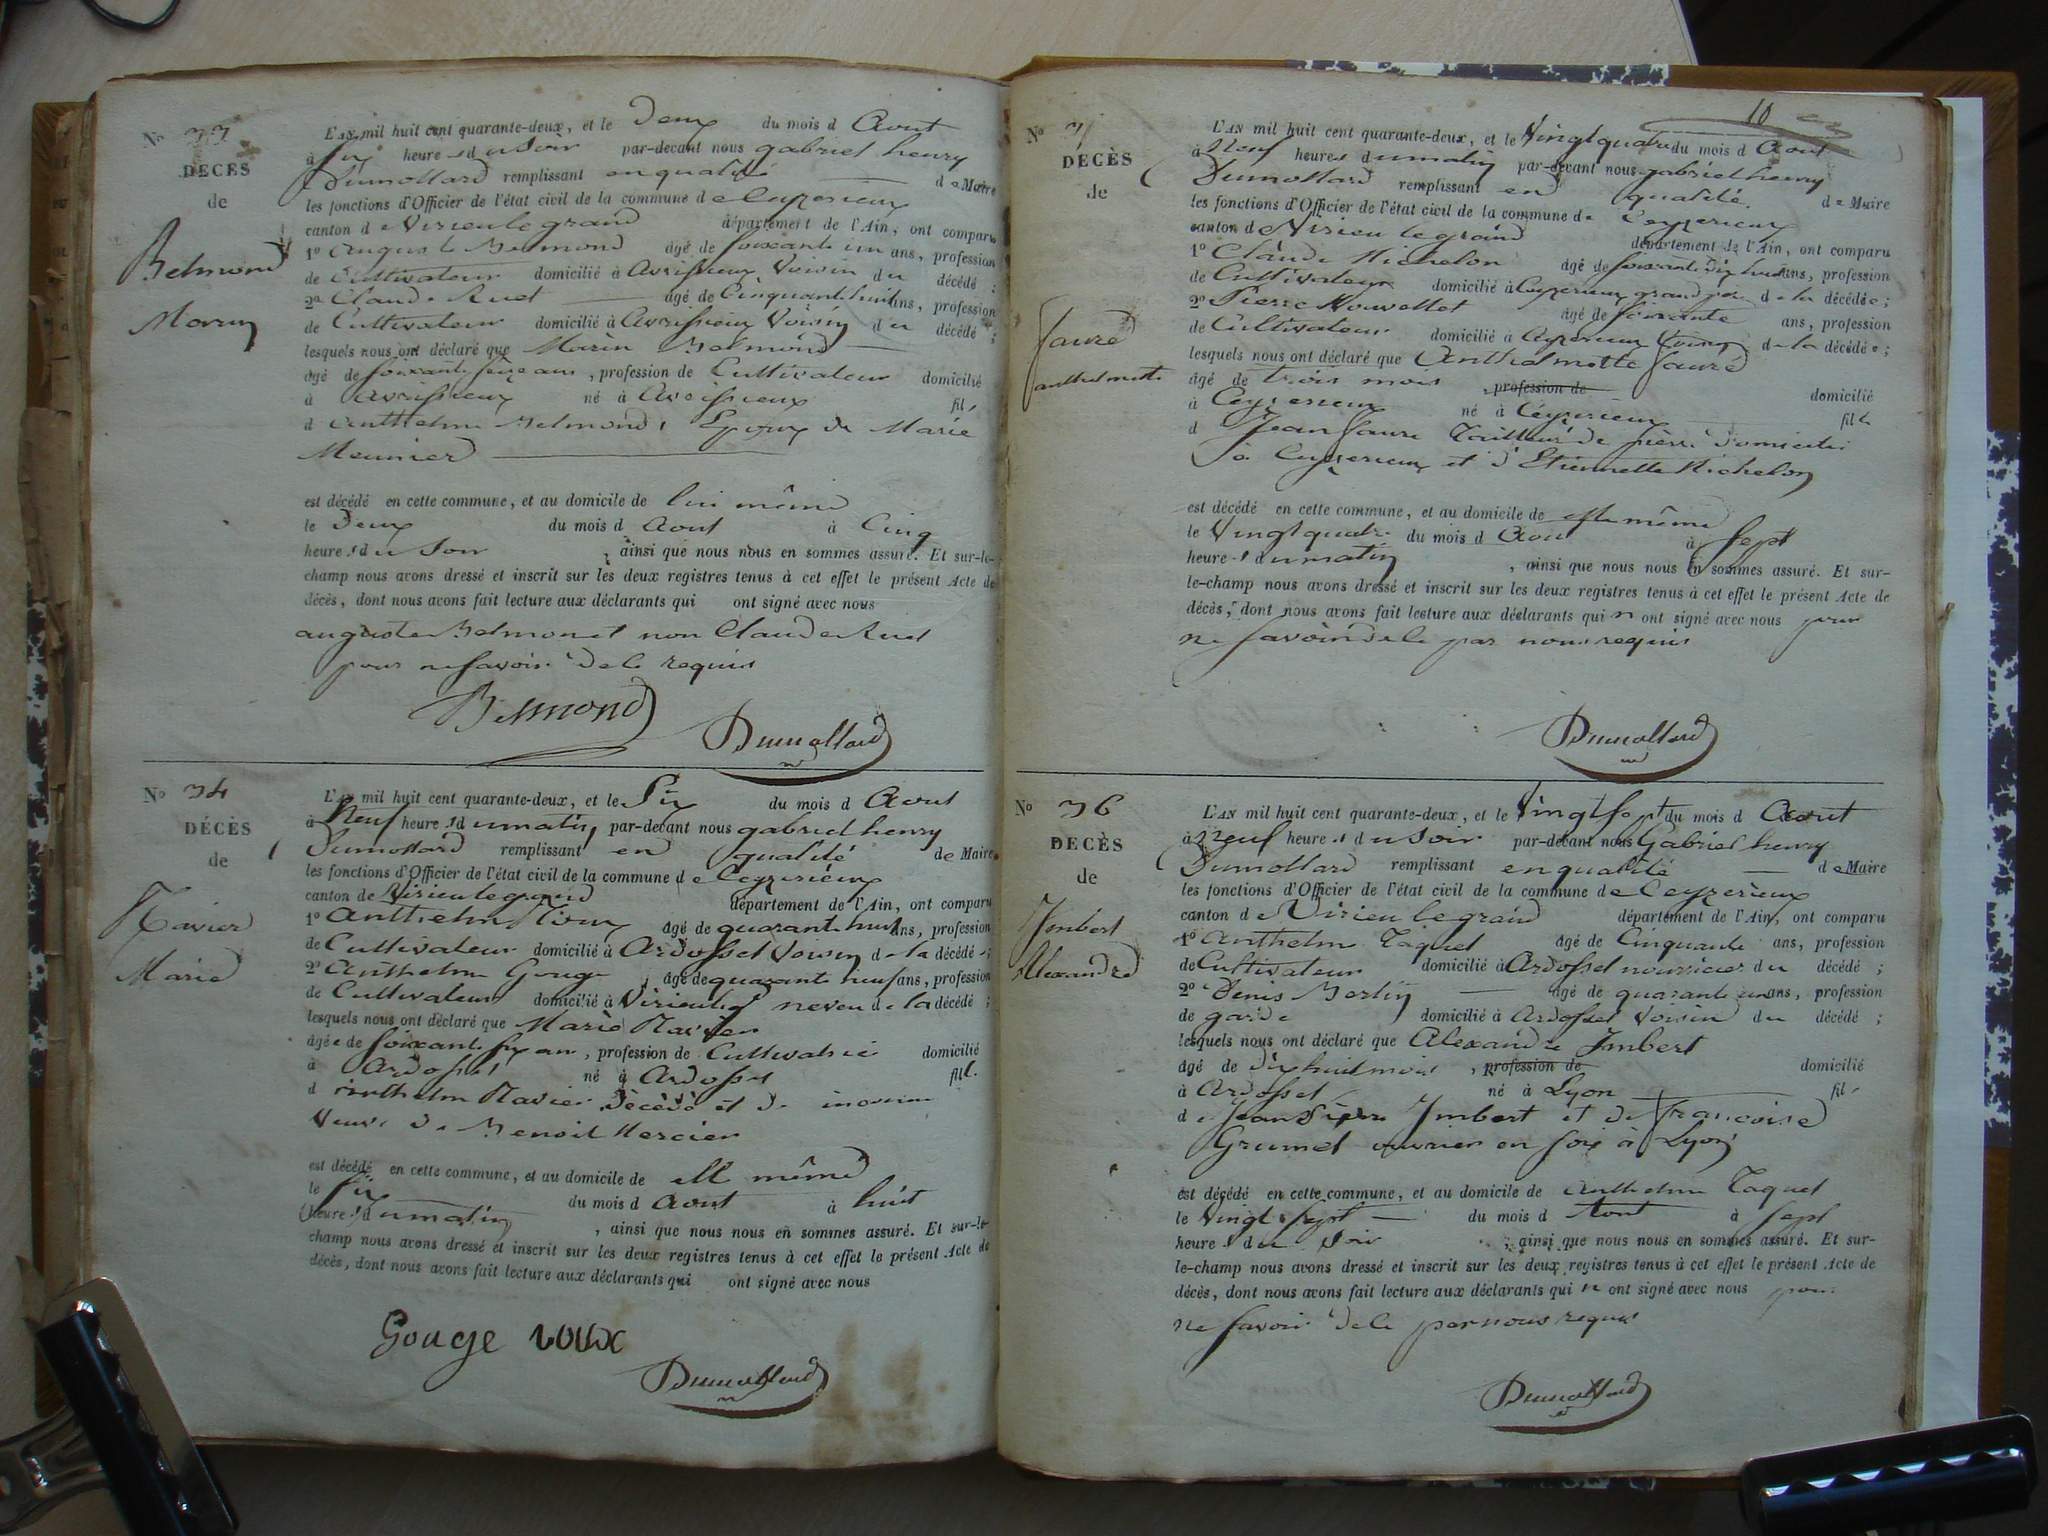 No 33
DECES
de
Belmond
Marin
L'AN mil huit cent quarante-deux, et le Deux du mois d Aout
à six heures du Soir par-devant nous gabriel henry
Dumollard remplissant en qualité de Maire
les fonctions d'Officier de l'état civil de la commune de Ceyzerieux
canton de Virieu le grand département de l'Ain, ont comparu
1o Auguste Belmond âgé de soixante un ans, profession
de Cultivateur domicilié à Avrissieux Voisin du décédé ;
2o Claude Ruet âgé de Cinquante huit ans, profession
de Cultivateur domicilié à Avrissieux Voisin du décédé ;
lesquels nous ont déclaré que Marin Belmond
âgé de soixante seize ans, profession de Cultivateur domicilié
à Avrissieux né à Avrissieux fils
d Anthelme Belmond, Epoux de Marie
Meunier
est décédé en cette commune, et au domicile de lui même
le Deux du mois d Aout à Cinq
heures du Soir, ainsi que nous nous en sommes assuré. Et sur-le-
champ nous avons dressé et inscrit sur les deux registres tenus à cet effet le présent Acte de
décès, dont nous avons fait lecture aux déclarants qui ont signé avec nous
auguste Belmond et non Claude Ruet
pour ne savoir de ce requis
Belmond
Dumollard
No 34
DÉCÈS
de
Navier
Marie
L'AN mil huit cent quarante-deux, et le Six du mois d Aout
à Neuf heures du matin par-devant nous gabriel henry
Dumollard remplissant en qualité de Maire
les fonctions d'Officier de l'état civil de la commune de Ceyzerieux
canton de Virieu le grand département de l'Ain, ont comparu
1o Anthelme Vioux âgé de quarante huit ans, profession
de Cultivateur domicilié à Ardosset Voisin de la décédée ;
2o Anthelme Gouge âgé de quarante neuf ans, profession
de Cultivateur domicilié à neveu de la décédé ;
lesquels nous ont déclaré que Marie Navier
âgée de soixante six ans, profession de Cultivatrice domicilié
à Ardosset né à Ardosset fille
d Anthelme Navier Décédé et de
Veuve de Benoit Mercier
est décédé en cette commune, et au domicile de elle même
le Six du mois d Aout à huit
heures du matin, ainsi que nous nous en sommes assuré. Et sur-le-
champ nous avons dressé et inscrit sur les deux registres tenus à cet effet le présent Acte de
décès, dont nous avons fait lecture aux déclarants qui ont signé avec nous
Gouge vouix
Dumollard
10
No
DÉCÈS
de
Faure
anthelmette
L'AN mil huit cent quarante-deux, et le Vingt quatre du mois d Aout
à Neuf heures du matin par-devant nous gabriel henry
Dumollard remplissant en qualité de Maire
les fonctions d'Officier de l'état civil de la commune de Ceyzerieux
canton de Virieu le grand département de l'Ain, ont comparu
1o Claude Michelon âgé de soixante dix huit ans, profession
de Cultivateur domicilié à Ceyzerieux grand père de la décédée ;
2o Pierre Nouvellet âgé de soixante ans, profession
de Cultivateur domicilié à Ceyzerieux Voisin de la décédée ;
lesquels nous ont déclaré que Anthelmette Faure
âgé de trois mois, profession de domicilié
à Ceyzerieux né à Ceyzerieux fille
d Jean Faure Tailleur de pierre Domicilié
à Ceyzerieux et d'Etiennette Michelon
est décédé en cette commune, et au domicile de elle même
le Vingt quatre du mois d Aout à Sept
heures du matin, ainsi que nous nous en sommes assuré. Et sur-
le-champ nous avons dressé et inscrit sur les deux registres tenus à cet effet le présent Acte de
décès, dont nous avons fait lecture aux déclarants qui n ont signé avec nous pour
ne savoir de ce par nous requis
Dumollard
No 36
DECÈS
de
Imbert
Alexandre
L'AN mil huit cent quarante-deux, et le Vingt sept du mois d Aout
à neuf heures du Soir par-devant nous Gabriel henry
Dumollard remplissant en qualité de Maire
les fonctions d'Officier de l'état civil de la commune de Ceyzerieux
canton de Virieu le grand département de l'Ain, ont comparu
1o Anthelme Taquet âgé de Cinquante ans, profession
de Cultivateur domicilié à Ardosset nourricier du décédé ;
2o Denis Berlin âgé de quarante un ans, profession
de garde domicilié à Ardosset Voisin du décédé ;
lesquels nous ont déclaré que Alexandre Imbert
âgé de dix huit mois, profession de domicilié
à Ardosset né à Lyon fils
de Jean Pierre Imbert et de Françoise
Grumel ouvrier en soie à Lyon
est décédé en cette commune, et au domicile de Anthelme Taquet
le Vingt sept du mois d Aout à Sept
heures du Soir, ainsi que nous nous en sommes assuré. Et sur-
le-champ nous avons dressé et inscrit sur les deux registres tenus à cet effet le présent Acte de
décès, dont nous avons fait lecture aux déclarants qui n ont signé avec nous pour
ne savoir de ce par nous requis
Dumollard